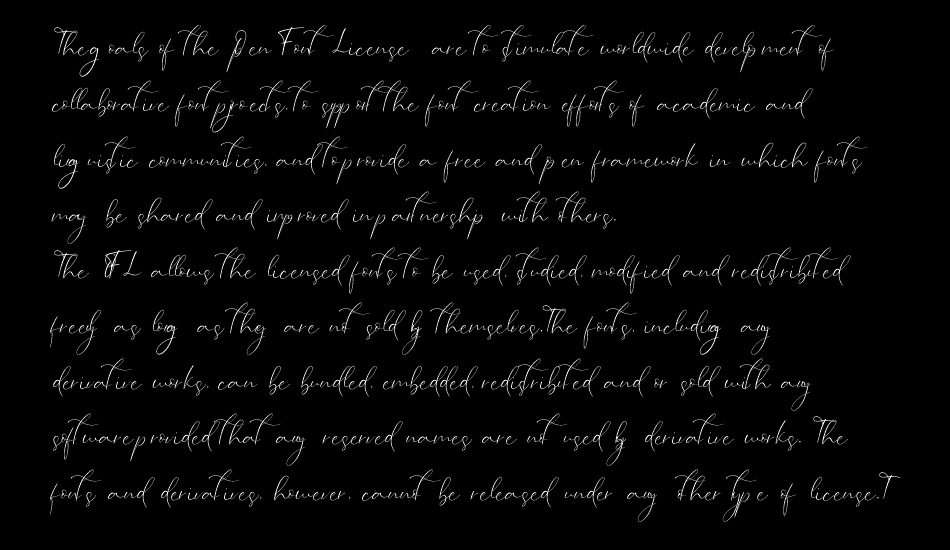 The goals of the Open Font License are to stimulate worldwide development of
collaborative font projects, to support the font creation efforts of academic and
linguistic communities, and to provide a free and open framework in which fonts
may be shared and improved in partnership with others.
The OFL allows the licensed fonts to be used, studied, modified and redistributed
freely as long as they are not sold by themselves. The fonts, including any
derivative works, can be bundled, embedded, redistributed and or sold with any
software provided that any reserved names are not used by derivative works. The
fonts and derivatives, however, cannot be released under any other type of license. T